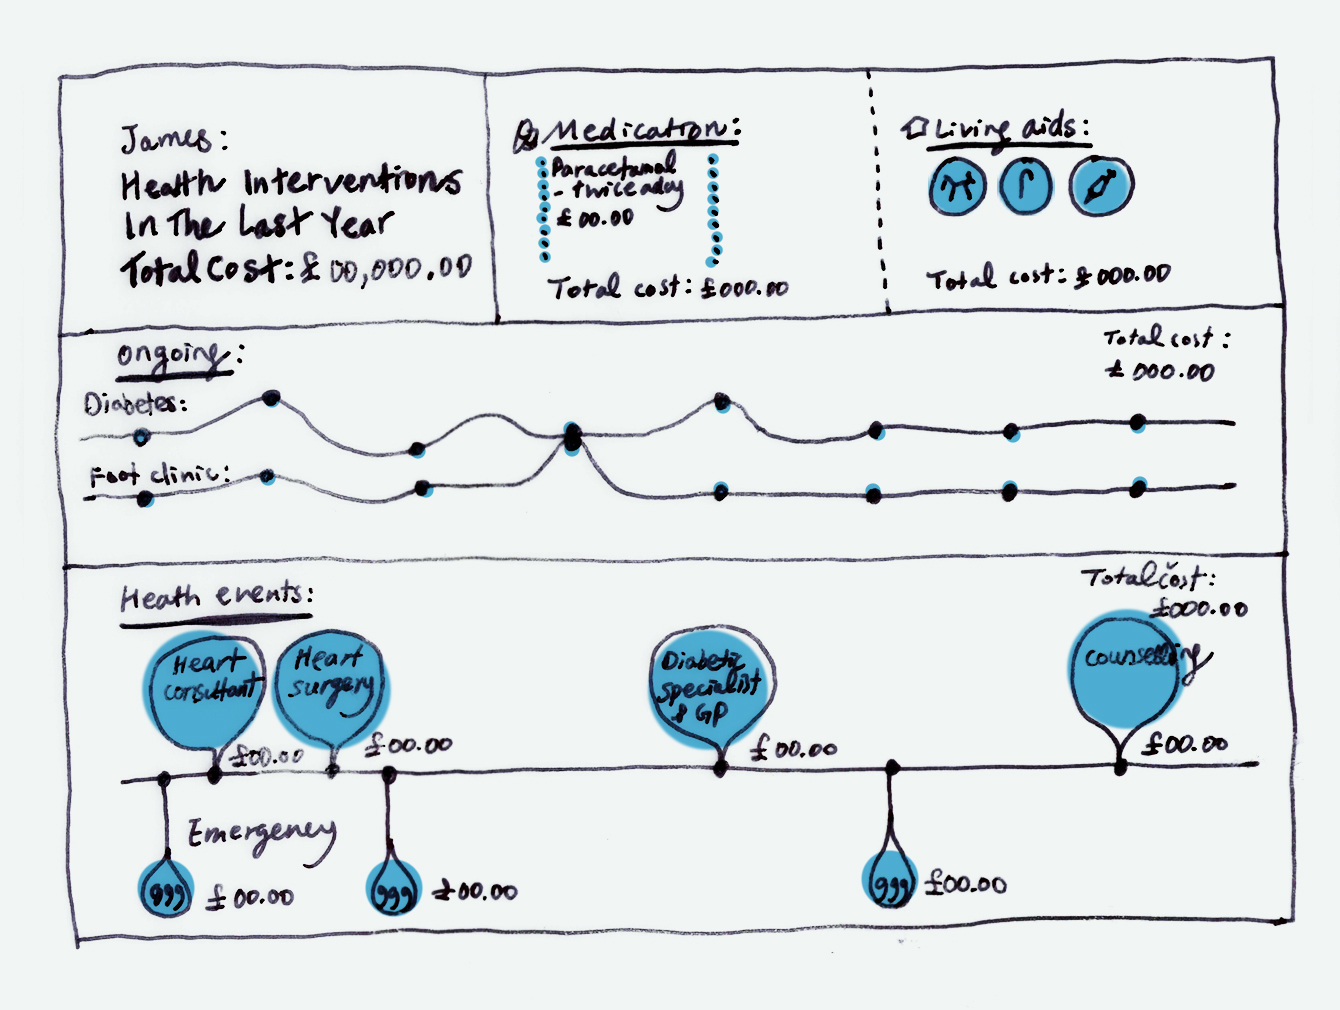 James:
Health Interventions
In The Last Year
Total Cost: £00,000.00
Medication:
Paracetamol
- twice a day
£00.00
Total cost: £000.00
Living aids:
Total cost: £000.00
Ongoing:
Total cost:
£000.00
Diabetes:
Foot clinic:
Heath events:
Total cost:
£000.00
Heart
consultant
£00.00
Heart
surgery
£00.00
Diabetic
specialist
& GP
£00.00
Counselling
£00.00
Emergency
999
£00.00
999
£00.00
999
£00.00